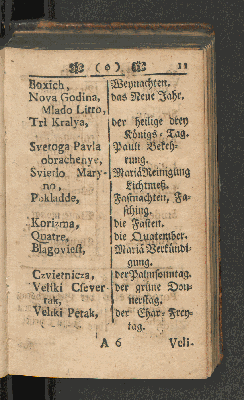 (0) 11
Boxich, Weynachten.
Nova Godina, das Neue Jahr.
Mlado Litto,
Tri Kralya, der heilige drey
Königs-Tag.
Svetoga Pavla Pauli Bekeh-
obrachenye, rung.
Svietlo Mary- Mariä Reinigung
no, Lichtmeß.
Pokladde, Fastnachten, Fa-
sching.
Korizma, die Fasten.
Quatre, die Quatember.
Blagoviest, Mariä Verkündi-
gung.
Czvietnicza, der Palmsonntag.
Veliki Csever- der grüne Don-
tak, nerstag.
Veliki Petak, der Char-Frey-
tag.
A 6 Veli-